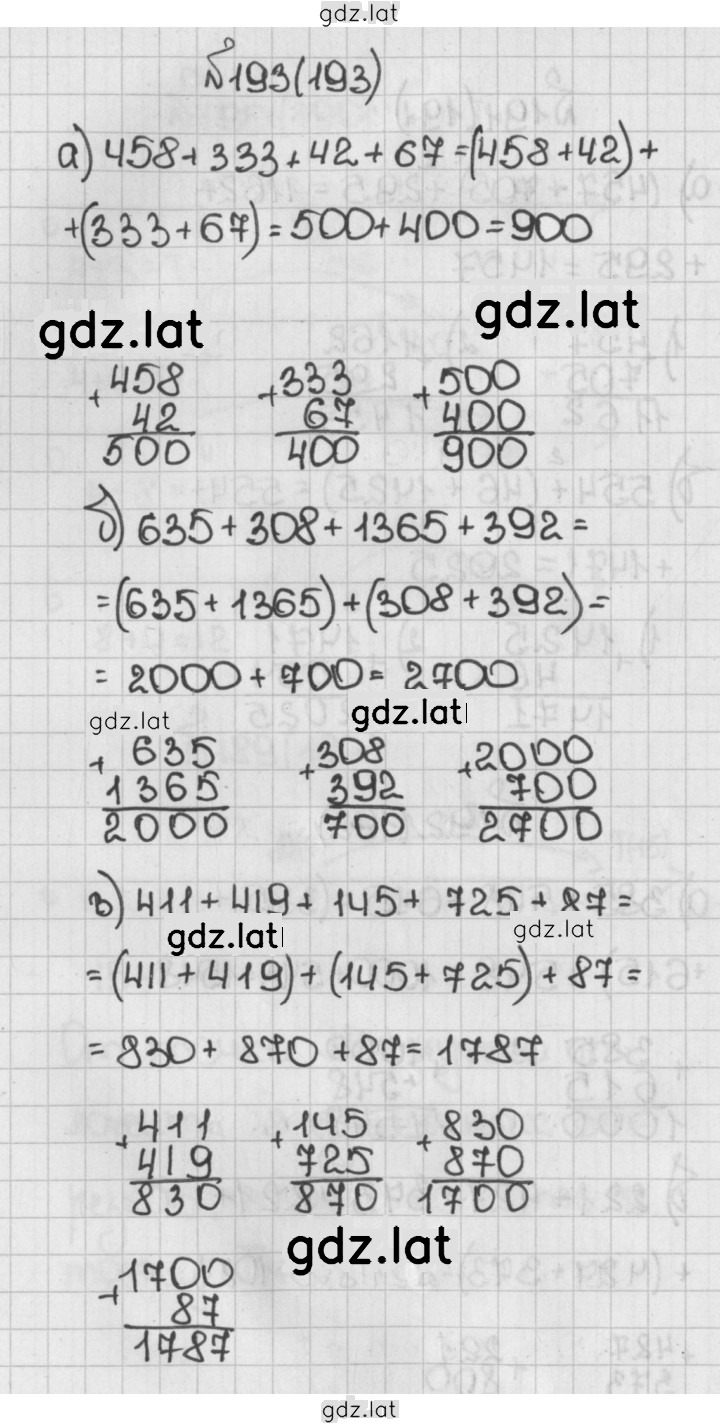 gdz.lat
№193(193)
а) 458+333+42+67=(458+42)+
+(333+67)=500+400=900
gdz.lat gdz.lat
+458 +333 +500
42 67 400
500 400 900
б) 635+308+1365+392=
=(635+1365)+(308+392)=
= 2000+700= 2700
gdz.lat gdz.lat
+ 635 +308 +2000
1365 392 700
2000 700 2700
в) 411+419+145+725+87=
gdz.lat gdz.lat
=(411+419)+(145+725)+87=
=830+870+87=1787
+411 +145 +830
419 725 870
830 870 1700
gdz.lat
+1700
87
1787
gdz.lat